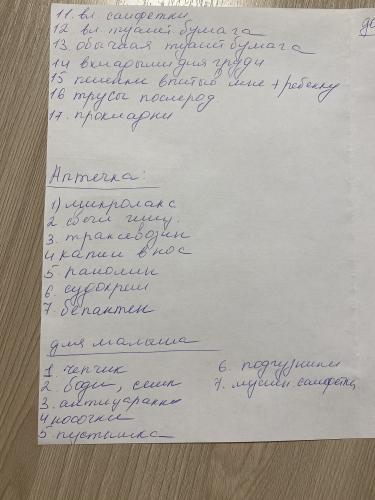 11. вл. салфетки
12 вл туалет. бумага
13 обычная туалет бумага
14 вкладыши для груди
15 пеленки впитыв мне + ребенку
16 трусы послерод
17. прокладки
Аптечка:
1) микролакс
2 свечи
3. троксевазин
4 капли в нос
5.
6. судокрем
7. бепантен
для малыша
1. чепчик
2. боди, слип
3. антицарапки
4 носочки
5 пустышка
6. подгузники
7. муслин салфетка